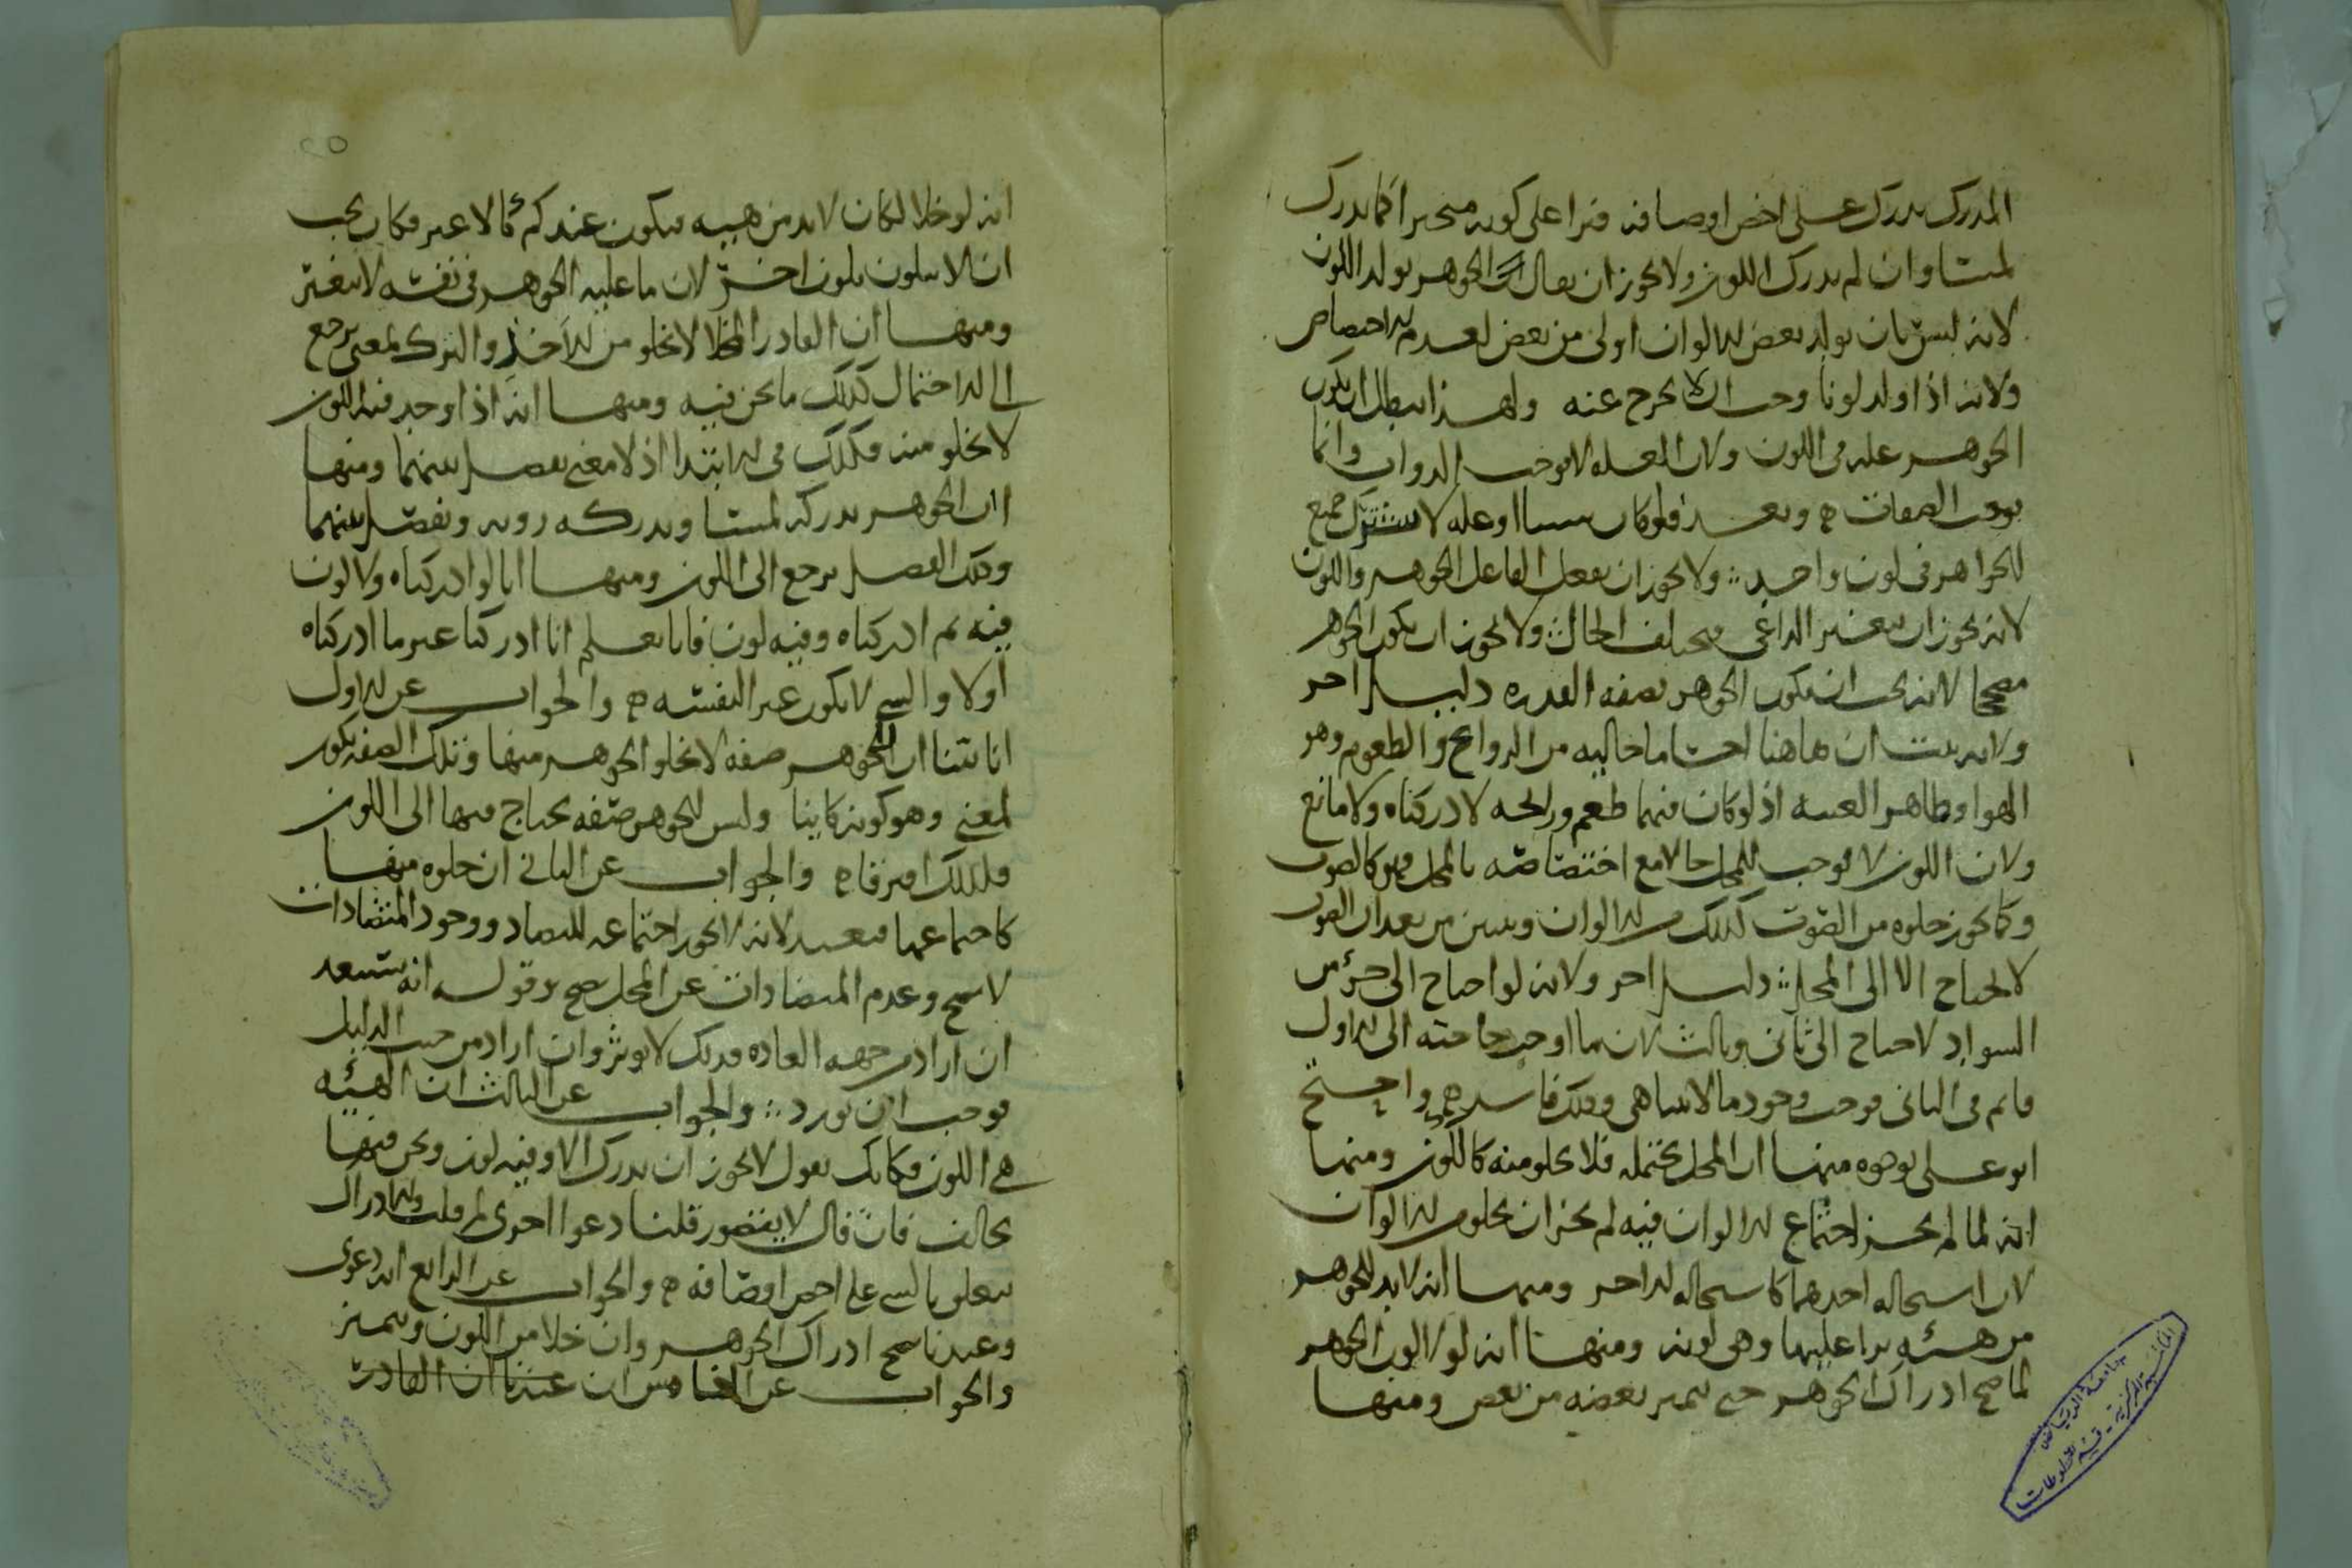 المدرك يدرك على اخص اوصافه فيرا على كونه متحيزا كما يدرك
لمسا وان لم يدرك اللون ولا يجوز ان يقال ان الجوهر يولد اللون
لانه ليس بان يولد بعض الالوان اولى من بعض لعدم الاختصاص
ولانه اذا ولد لونا وجب ان لا يخرج عنه ولهذا يبطل ان يكون
الجوهر علة في اللون ولان العلة لا توجب الذوات وانما
توجب الصفات ه وبعد فلو كان سببا او علة لاشترك جميع
الجواهر في لون واحد ولا يجوز ان يفعل الفاعل الجوهر واللون
لانه يجوز ان يتغير الداعي فيختلف الحال ولا يجوز ان يكون الجوهر
مصححا لانه يجب ان يكون الجوهر بصفة القدرة دليل اخر
ولانه يثبت ان هاهنا اجساما خالية من الروايح والطعوم وهو
الهوا وظاهر العنبة اذ لو كان فيهما طعم ورائحة لادركناه ولا مانع
ولان اللون لا يوجب للمحل حالا مع اختصاصه بالمحل فهو كالصوت
وكما يجوز خلوه من الصوت كذلك من الالوان ويبين من بعد ان الصوت
لا يحتاج الا الى المحل دليل اخر ولانه لو احتاج الى جزؤ من
السواد لاحتاج الى ثاني وثالث لان ما اوجب حاجته الى الاول
قائم في الثاني فوجب وجود ما لا يتناهى وذلك فاسد ه واحتج
ابو علي بوجوه منها ان المحل يحتمله فلا يخلو منه كالكون ومنها
انه لما لم يجز اجتماع الالوان فيه لم يجز ان يخلو من الالوان
لان استحالة احدهما كاستحالة الاخر ومنها انه لا بد للجوهر
من هيئة يرا عليها وهي لونه ومنها انه لولا لون الجوهر
لما صح ادراك الجوهر حتى يتميز بعضه من بعض ومنها
انه لو خلا لكان لا بد من هيية فيكون عندكم كالاغبر فكان يجب
ان لا يتلون بلون اخر لان ما عليه الجوهر في نفسه لا يتغير
ومنها ان القادر المخلا لا يخلو من الاخذ والترك لمعنى يرجع
الى الاحتمال كذلك ما نحن فيه ومنها انه اذا وجد فيه اللون
لا يخلو منه فكذلك في الابتدا اذ لا معنى يفصل بينهما ومنها
ان الجوهر يدركه لمسا ويدركه روية ويفصل بينهما
وذلك الفصل يرجع الى اللون ومنها انا لو ادركناه ولا لون
فيه ثم ادركناه وفيه لون فانا نعلم انا ادركنا غير ما ادركناه
اولا والشي لا يكون غير النفسه ه والجواب عن الاول
انا بينا ان للجوهر صفة لا يخلو الجوهر منها وتلك الصفة تكون
لمعنى وهو كونه كاينا وليس للجوهر صفة يحتاج فيها الى اللون
فلذلك افترقا ه والجواب عن الثاني ان خلوه منها
كاجتماعها فبعيد لانه لا يجوز اجتماعه للتضاد ووجود المتضادات
لا يصح وعدم المتضادات عن المحل يصح وقوله انه يستبعد
ان اراد من جهة العادة فذلك لا يوثر وان اراد من حيث الدليل
فوجب ان يورد والجواب عن الثالث ان الهيئه
هي اللون فكانك تقول لا يجوز ان يدرك الا وفيه لون ونحن فيها
نخالف فان قال لا يتصور قلنا دعوا اخرى لم قلت والادراك
يتعلق بالشي على اخص اوصافه ه والجواب عن الرابع انه دعوى
وعندنا يصح ادراك الجوهر وان خلا من اللون ويتميز
والجواب عن الخامس ان عندنا ان القادر
جامعة الرياض
المكتبة المركزية - قسم المخطوطات